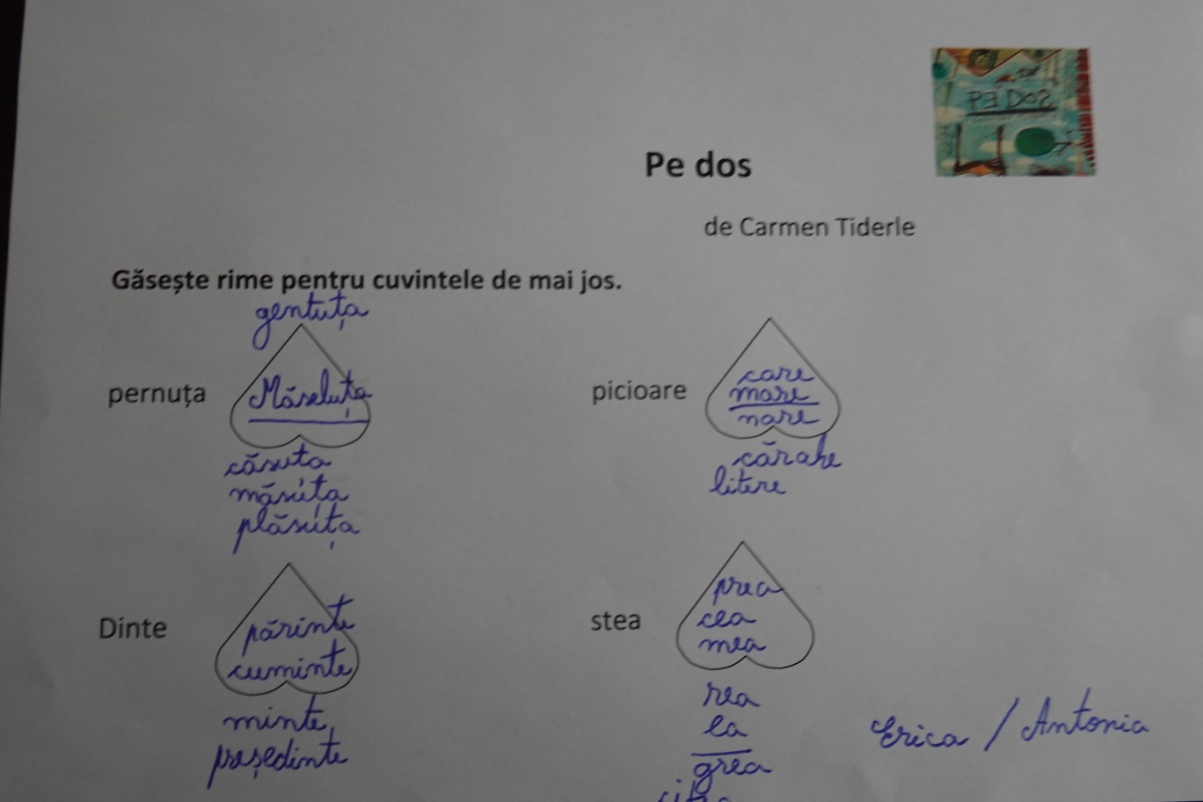 PE DOS
Pe dos
de Carmen Tiderle
Găsește rime pentru cuvintele de mai jos.
gentuța
pernuța
Măseluța
căsuta
măsuța
plăsuța
picioare
care
mare
nare
litere
Dinte
părinte
cuminte
minte
președinte
stea
prea
cea
mea
rea
ea
grea
Erica / Antonia